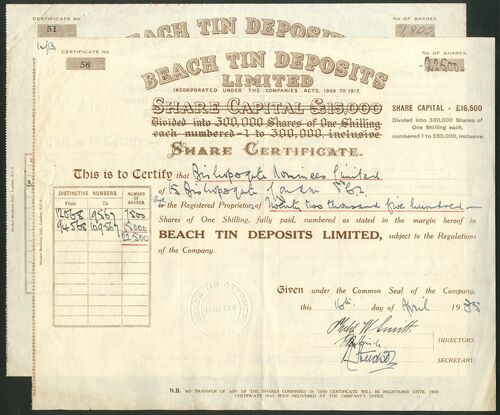 CERTIFICATE NO.
51
BEACH TIN DEPOSITS
NO. OF SHARES.
1,800
CERTIFICATE NO.
56
BEACH TIN DEPOSITS
LIMITED
NO. OF SHARES.
22500
INCORPORATED UNDER THE COMPANIES ACTS, 1908 TO 1917.
SHARE CAPITAL £15,000
Divided into 300,000 Shares of One Shilling
each numbered 1 to 300,000, inclusive.
SHARE CAPITAL - £16,500
Divided into 330,000 Shares of
One Shilling each,
numbered 1 to 330,000, inclusive.
SHARE CERTIFICATE.
This is to Certify that Bishopsgate Nominees Limited
of 15 Bishopsgate London E.C.2.
the Registered Proprietors of Twenty two thousand five hundred
Shares of One Shilling, fully paid, numbered as stated in the margin hereof in
BEACH TIN DEPOSITS LIMITED, subject to the Regulations
of the Company.
DISTINCTIVE NUMBERS.
NUMBER OF SHARES
From To
12068 19567 7500
94568 109567 15000
22500
Given under the Common Seal of the Company,
this 16th day of April 1935
BEACH TIN DEPOSITS
Philip W Smith
DIRECTORS.
SECRETARY.
N.B. NO TRANSFER OF ANY OF THE SHARES COMPRISED IN THIS CERTIFICATE WILL BE REGISTERED UNTIL THIS
CERTIFICATE HAS BEEN DELIVERED AT THE COMPANY'S OFFICE.